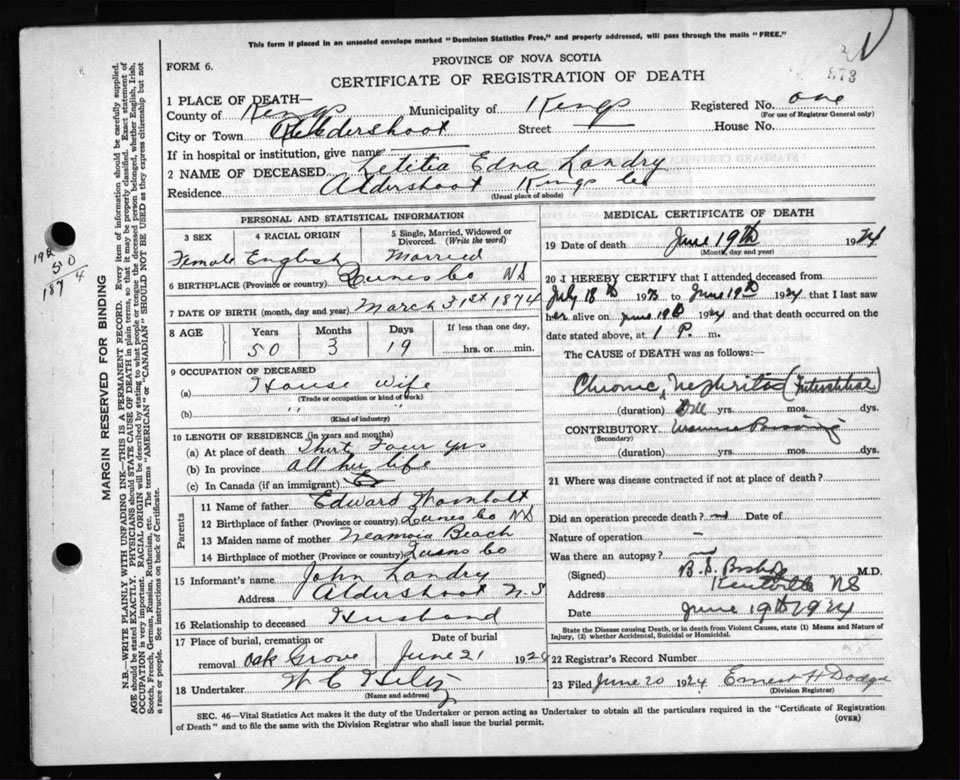 This form if placed in an unsealed envelope marked "Dominion Statistics Free," and properly addressed, will pass through the mails "FREE."
PROVINCE OF NOVA SCOTIA
FORM 6.
CERTIFICATE OF REGISTRATION OF DEATH
873
1 PLACE OF DEATH—
County of Kings Municipality of Kings Registered No. one
(For use of Registrar General only)
City or Town Aldershoot Street House No.
If in hospital or institution, give name
2 NAME OF DECEASED Letitia Edna Landry
Residence Aldershoot Kings Co
(Usual place of abode)
PERSONAL AND STATISTICAL INFORMATION
3 SEX 4 RACIAL ORIGIN 5 Single, Married, Widowed or Divorced. (Write the word)
Female English Married
6 BIRTHPLACE (Province or country) Lunes Co NS
7 DATE OF BIRTH (month, day and year) March 31st 1874
8 AGE Years Months Days If less than one day,
50 3 19 hrs. or min.
9 OCCUPATION OF DECEASED
(a) House wife
(Trade or occupation or kind of work)
(b) " "
(Kind of industry)
10 LENGTH OF RESIDENCE (in years and months)
(a) At place of death Four yrs
(b) In province all her life
(c) In Canada (if an immigrant)
Parents
11 Name of father Edward
12 Birthplace of father (Province or country) Lunes Co NS
13 Maiden name of mother Beach
14 Birthplace of mother (Province or country) Co
15 Informant's name John Landry
Address Aldershoot N.S
16 Relationship to deceased Husband
17 Place of burial, cremation or Date of burial
removal Oak Grove June 21 192
18 Undertaker W C Hiltz
(Name and address)
MEDICAL CERTIFICATE OF DEATH
19 Date of death June 19th 1924
(Month, day and year)
20 I HEREBY CERTIFY that I attended deceased from
July 18th 1923 to June 19th 1924 that I last saw
her alive on June 19th 1924 and that death occurred on the
date stated above, at 1 P. m.
The CAUSE of DEATH was as follows:
Chronic Nephritis (Interstitial)
(duration) yrs. mos. dys.
CONTRIBUTORY
(Secondary)
(duration) yrs. mos. dys.
21 Where was disease contracted if not at place of death?
Did an operation precede death? Date of
Nature of operation —
Was there an autopsy?
(Signed) B. S. Bishop M.D.
Address Kentville NS
Date June 19th 1924
State the Disease causing Death, or in death from Violent Causes, state (1) Means and Nature of
Injury, (2) whether Accidental, Suicidal or Homicidal.
22 Registrar's Record Number
23 Filed June 20 1924 Ernest H Dodge
(Division Registrar)
SEC. 46—Vital Statistics Act makes it the duty of the Undertaker or person acting as Undertaker to obtain all the particulars required in the "Certificate of Registration
of Death" and to file the same with the Division Registrar who shall issue the burial permit.
(OVER)
MARGIN RESERVED FOR BINDING
N.B.—WRITE PLAINLY WITH UNFADING INK—THIS IS A PERMANENT RECORD. Every item of information should be carefully supplied.
AGE should be stated EXACTLY. PHYSICIANS should STATE CAUSE OF DEATH in plain terms, so that it may be properly classified. Exact statement of
OCCUPATION is very important. RACIAL ORIGIN will be described by stating to what people or tongue the deceased person belonged, whether English, Irish,
Scotch, French, German, Russian, Ruthenian, etc. The terms "AMERICAN" or "CANADIAN" SHOULD NOT BE USED as they express citizenship but not
a race or people. See instructions on back of Certificate.
192
50
187 4